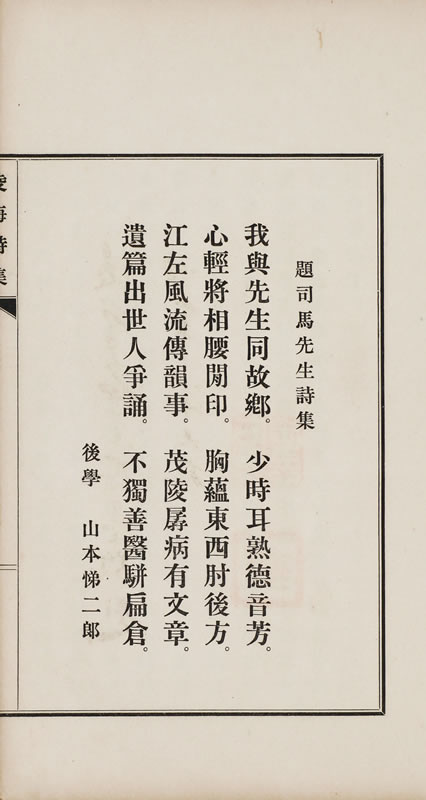 題司馬先生詩集
我與先生同故鄕。少時耳熟德音芳。
心輕將相腰閒印。胸蘊東西肘後方。
江左風流傳韻事。茂陵孱病有文章。
遺篇出世人爭誦。不獨善醫駢扁倉。
後學 山本悌二郞
詩集